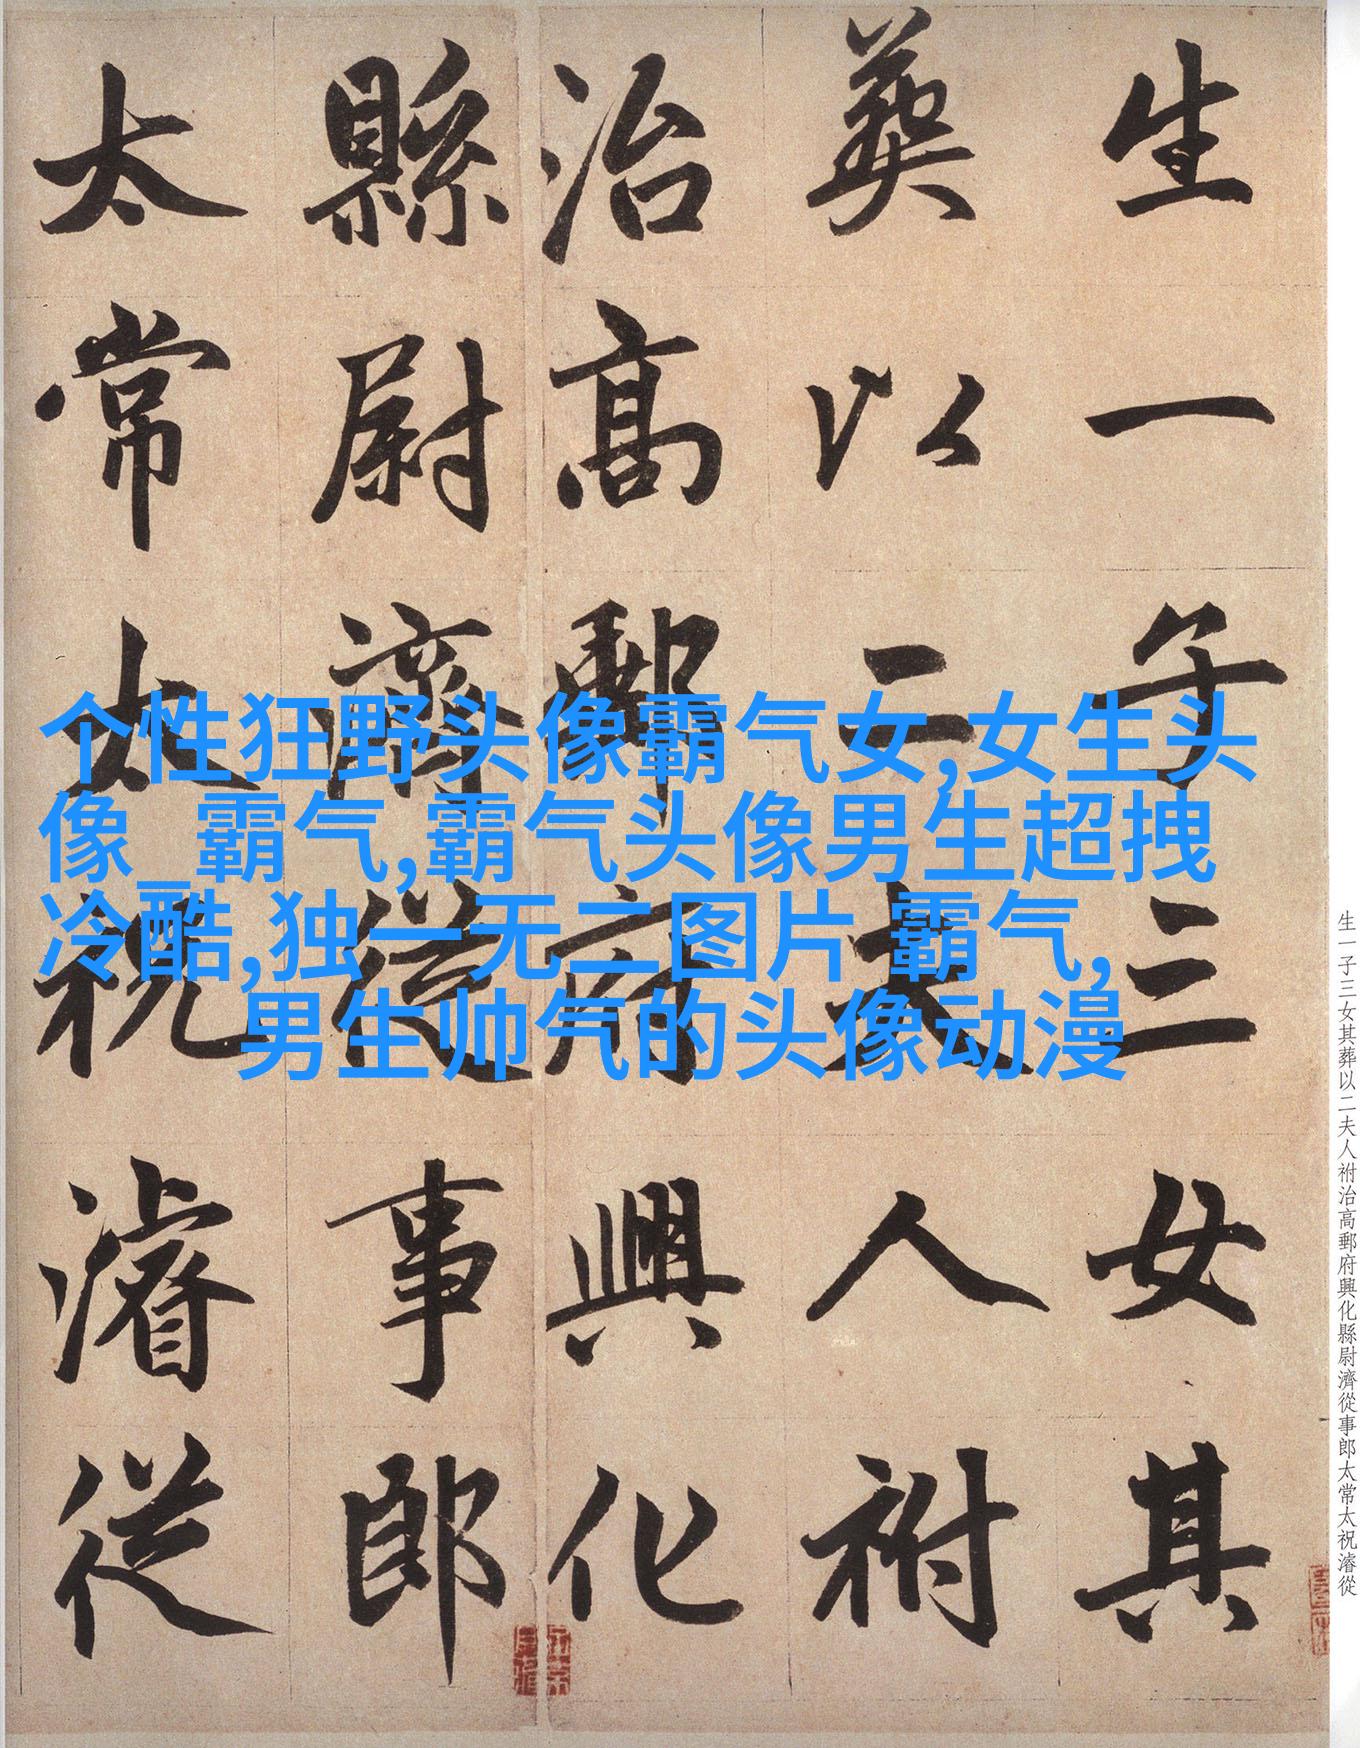 生一子三女其
葬以二夫人祔
治高郵府興化
縣尉濟從事郎
太常太祝濬從
个性狂野头像霸气女,女生头
像_霸气,霸气头像男生超拽
冷酷,独一无二图片 霸气,
男生帅气的头像动漫
生一子三女其葬以二夫人祔治高郵府興化縣尉濟從事郎太常太祝濬從